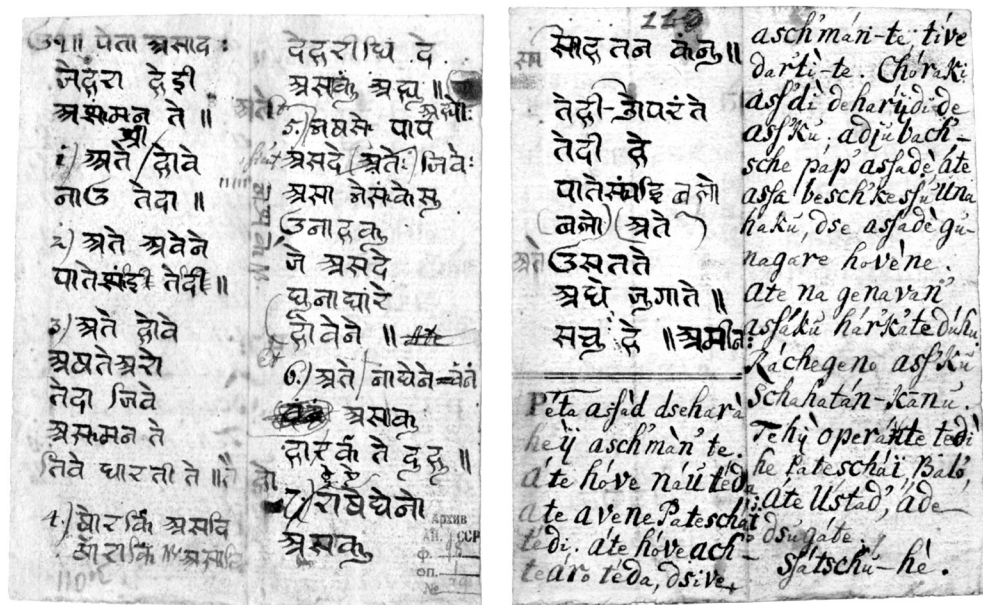 पेता असाद :
जेहरा हेई
असमन ते ॥
1.) अते होवे
नाउ तेदा ॥
2.) अते अवेने
पातेसंही तेदी ॥
3.) अते होवे
अषतेअरो
तेदा जिवे
असमन ते
तिवे घारती ते ॥
4.) षोरकि असदि
देहरीधि दे
असकु अद्यु ॥
5.) बषसे पाप
असदे अते: जिवे:
असा बेसकेसु
उनाहकु
जे असदे
घुनाघारे
होवेने ॥
6.) अते नाघेने
असाकु
हारक ते दुहु ॥
7.) राषेघेनो
असकु
Архив
АН. СССР
Ф.
оп.
№
110
सोहतन कनु ॥
तेही-ओपरंते
तेदी हे
पातेसंषहि बलो
(बलो) (अते)
उसतते
अधे जुगाते ॥
सचु हे ॥ अमीन:
Péta asſàd dseharà
heÿ asch'màn' te.
áte hóve náú téda
ate avene Pateschái
tédi. áte hóve ach-
tearo téda, dsive
asch'mán-te, tíve
dartì-te. Chóraki
asſ'dì deharijdi de
asſ'kŭ. adjŭ bach'-
sche páp' asſadè, áte
asſa besch'kesſŭ Una
hakŭ, dse asſadè gŭ-
nagáre hovène.
áte na genavan'
asſákŭ hárkáte dúhu
Ráchegeno asſ'kŭ
schahatán-kánŭ.
Tehÿ operánte tedì
he Páteschái, Baló,
áte Ústad', áde
dsŭgáte.
sſátschŭ-hè.